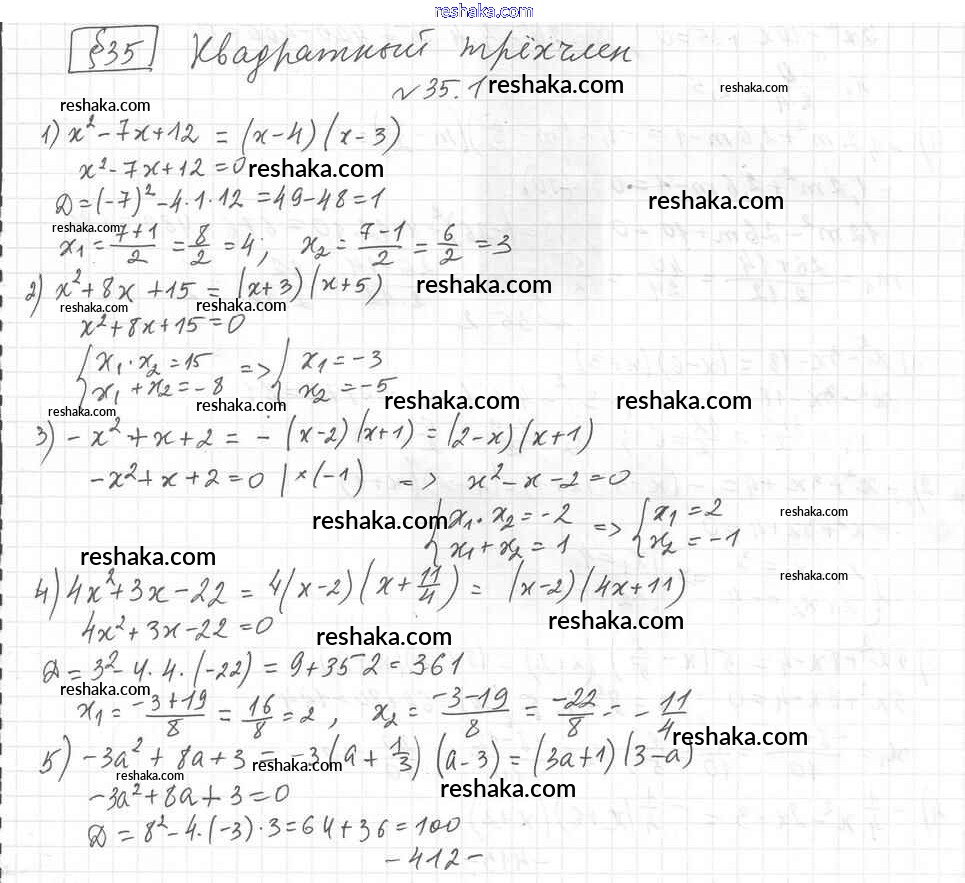 reshaka.com
§35 Квадратный трёхчлен
№35.1 reshaka.com reshaka.com
reshaka.com
1) x² - 7x + 12 = (x - 4)(x - 3)
x² - 7x + 12 = 0 reshaka.com
D = (-7)² - 4·1·12 = 49 - 48 = 1 reshaka.com
reshaka.com
x₁ = (7+1)/2 = 8/2 = 4; x₂ = (7-1)/2 = 6/2 = 3
2) x² + 8x + 15 = (x+3)(x+5) reshaka.com
reshaka.com reshaka.com
x² + 8x + 15 = 0
{ x₁·x₂ = 15 => { x₁ = -3
x₁ + x₂ = -8 x₂ = -5
reshaka.com reshaka.com reshaka.com reshaka.com
3) -x² + x + 2 = -(x-2)(x+1) = (2-x)(x+1)
-x² + x + 2 = 0 |×(-1) => x² - x - 2 = 0
reshaka.com { x₁·x₂ = -2 => { x₁ = 2 reshaka.com
x₁ + x₂ = 1 x₂ = -1
reshaka.com
reshaka.com
4) 4x² + 3x - 22 = 4(x-2)(x + 11/4) = (x-2)(4x+11)
4x² + 3x - 22 = 0 reshaka.com reshaka.com
D = 3² - 4·4·(-22) = 9 + 352 = 361
reshaka.com
x₁ = (-3+19)/8 = 16/8 = 2, x₂ = (-3-19)/8 = -22/8 = -11/4
reshaka.com
5) -3a² + 8a + 3 = -3(a + 1/3)(a-3) = (3a+1)(3-a)
reshaka.com reshaka.com
-3a² + 8a + 3 = 0 reshaka.com
D = 8² - 4·(-3)·3 = 64 + 36 = 100
- 412 -